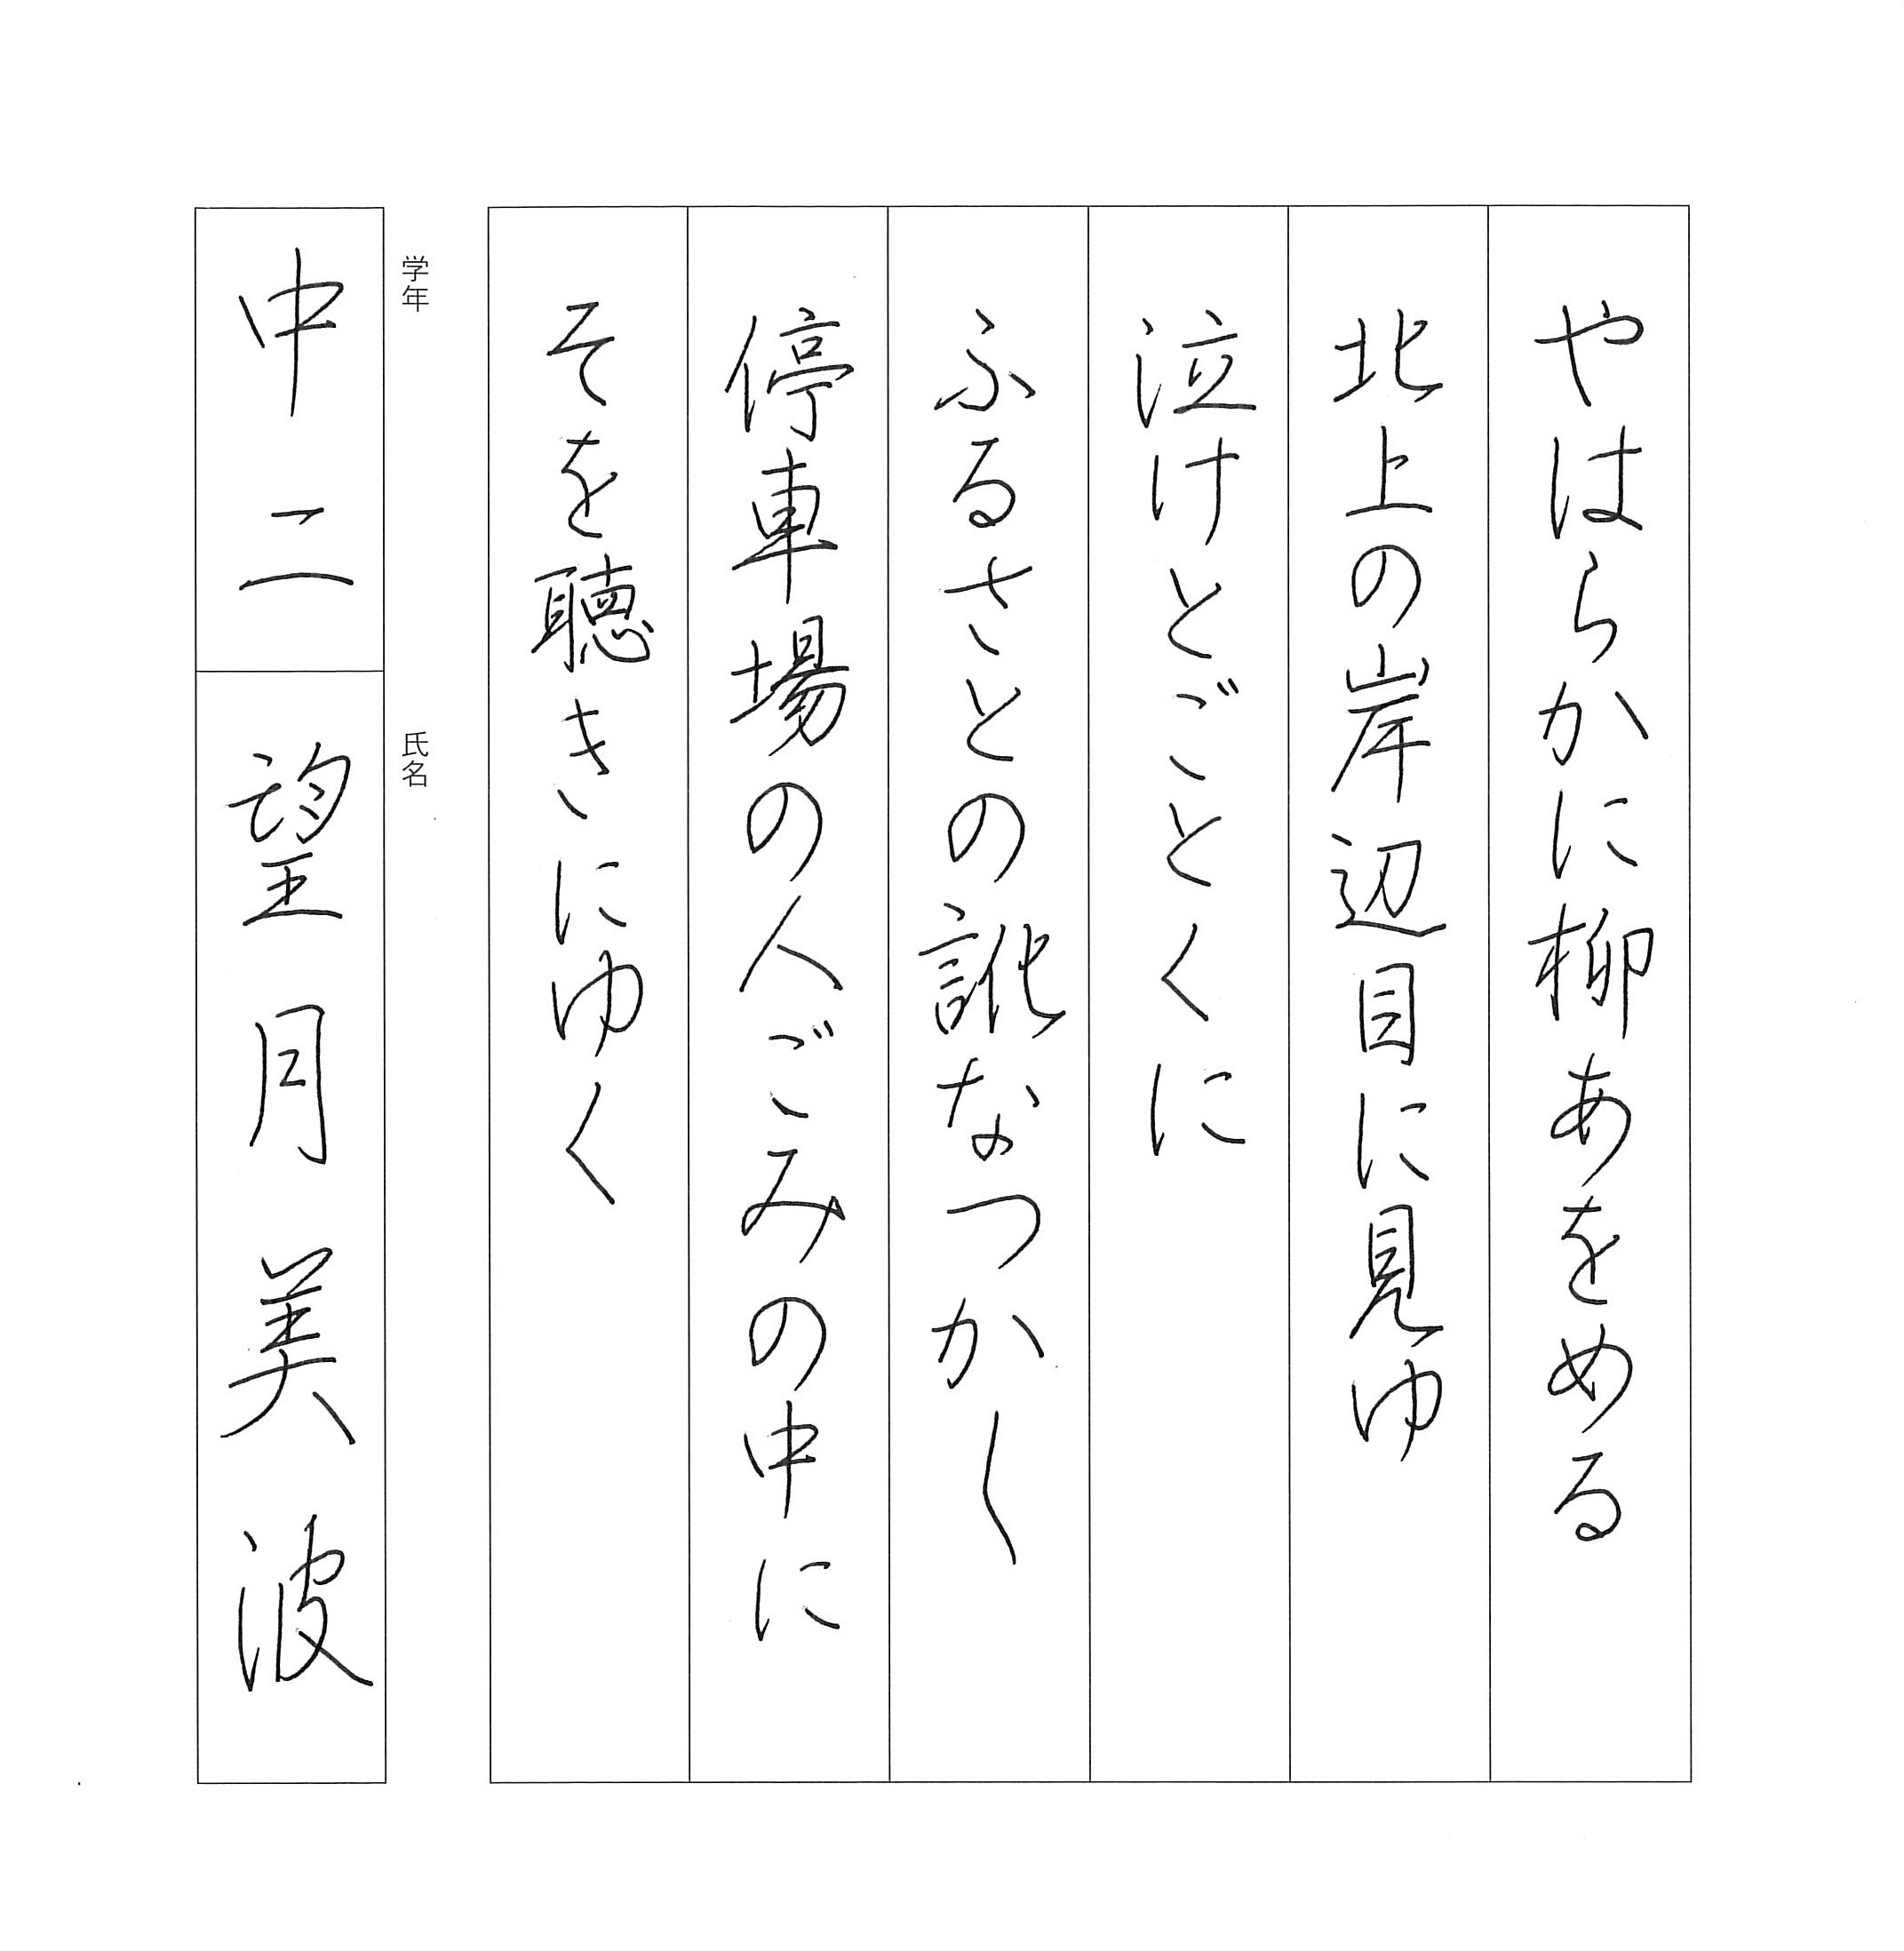 やはらかに柳あをめる
北上の岸辺目に見ゆ
泣けとごとくに
ふるさとの訛なつかし
停車場の人ごみの中に
そを聴きにゆく
学年
中二
氏名
望月美波